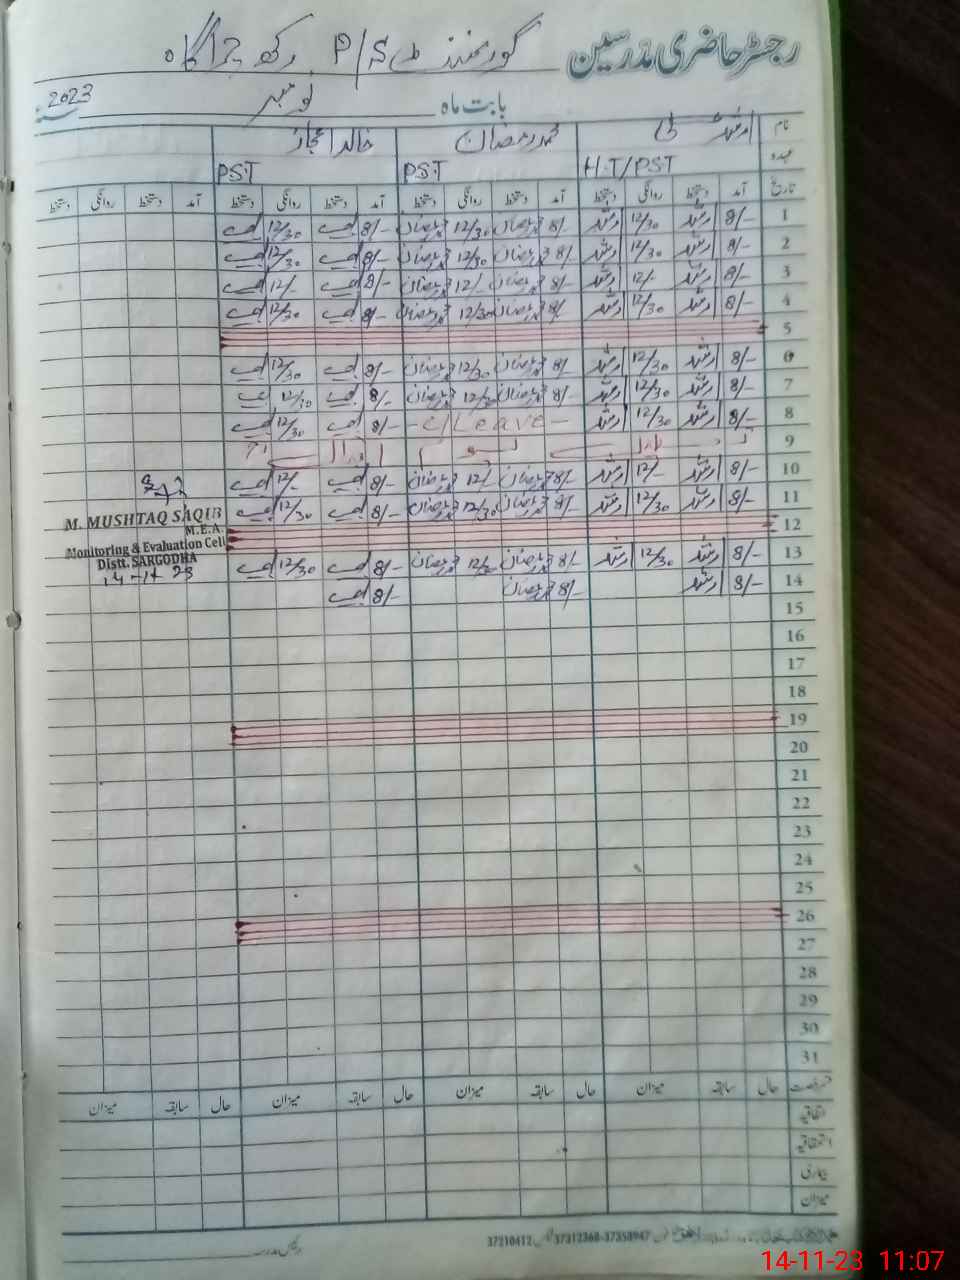 رجسٹر حاضری مدرسین
گورنمنٹ P/S رکھ چراگاہ
بابت ماہ نومبر 2023
نام ارشد علی محمد رمضان خالد اعجاز
عہدہ H.T/PST PST PST
تاریخ آمد دستخط روانگی دستخط آمد دستخط روانگی دستخط آمد دستخط روانگی دستخط آمد دستخط روانگی دستخط
1 8/- ارشد 12/30 ارشد 8/- رمضان 12/30 رمضان 8/- 12/30
2 8/- ارشد 12/30 ارشد 8/- رمضان 12/30 رمضان 8/- 12/30
3 8/- ارشد 12/- ارشد 8/- رمضان 12/- رمضان 8/- 12/-
4 8/- ارشد 12/30 ارشد 8/- رمضان 12/30 رمضان 8/- 12/30
5
6 8/- ارشد 12/30 ارشد 8/- رمضان 12/30 رمضان 8/- 12/30
7 8/- ارشد 12/30 ارشد 8/- رمضان 12/30 رمضان 8/- 12/30
8 8/- ارشد 12/30 ارشد - C/Leave - 8/- 12/30
9
10 8/- ارشد 12/- ارشد 8/- رمضان 12/- رمضان 8/- 12/-
11 8/- ارشد 12/30 ارشد 8/- رمضان 12/30 رمضان 8/- 12/30
M. MUSHTAQ SAQIB
M.E.A.
Monitoring & Evaluation Cell
Distt. SARGODHA
14-11-23
12
13 8/- ارشد 12/30 ارشد 8/- رمضان 12/30 رمضان 8/- 12/30
14 8/- ارشد 8/- رمضان 8/-
15
16
17
18
19
20
21
22
23
24
25
26
27
28
29
30
31
رخصت حال سابقہ میزان حال سابقہ میزان حال سابقہ میزان حال سابقہ میزان
اتفاقیہ
استحقاقیہ
بیماری
میزان
37210412 37312368-37358947
رئیس مدرسہ
14-11-23 11:07